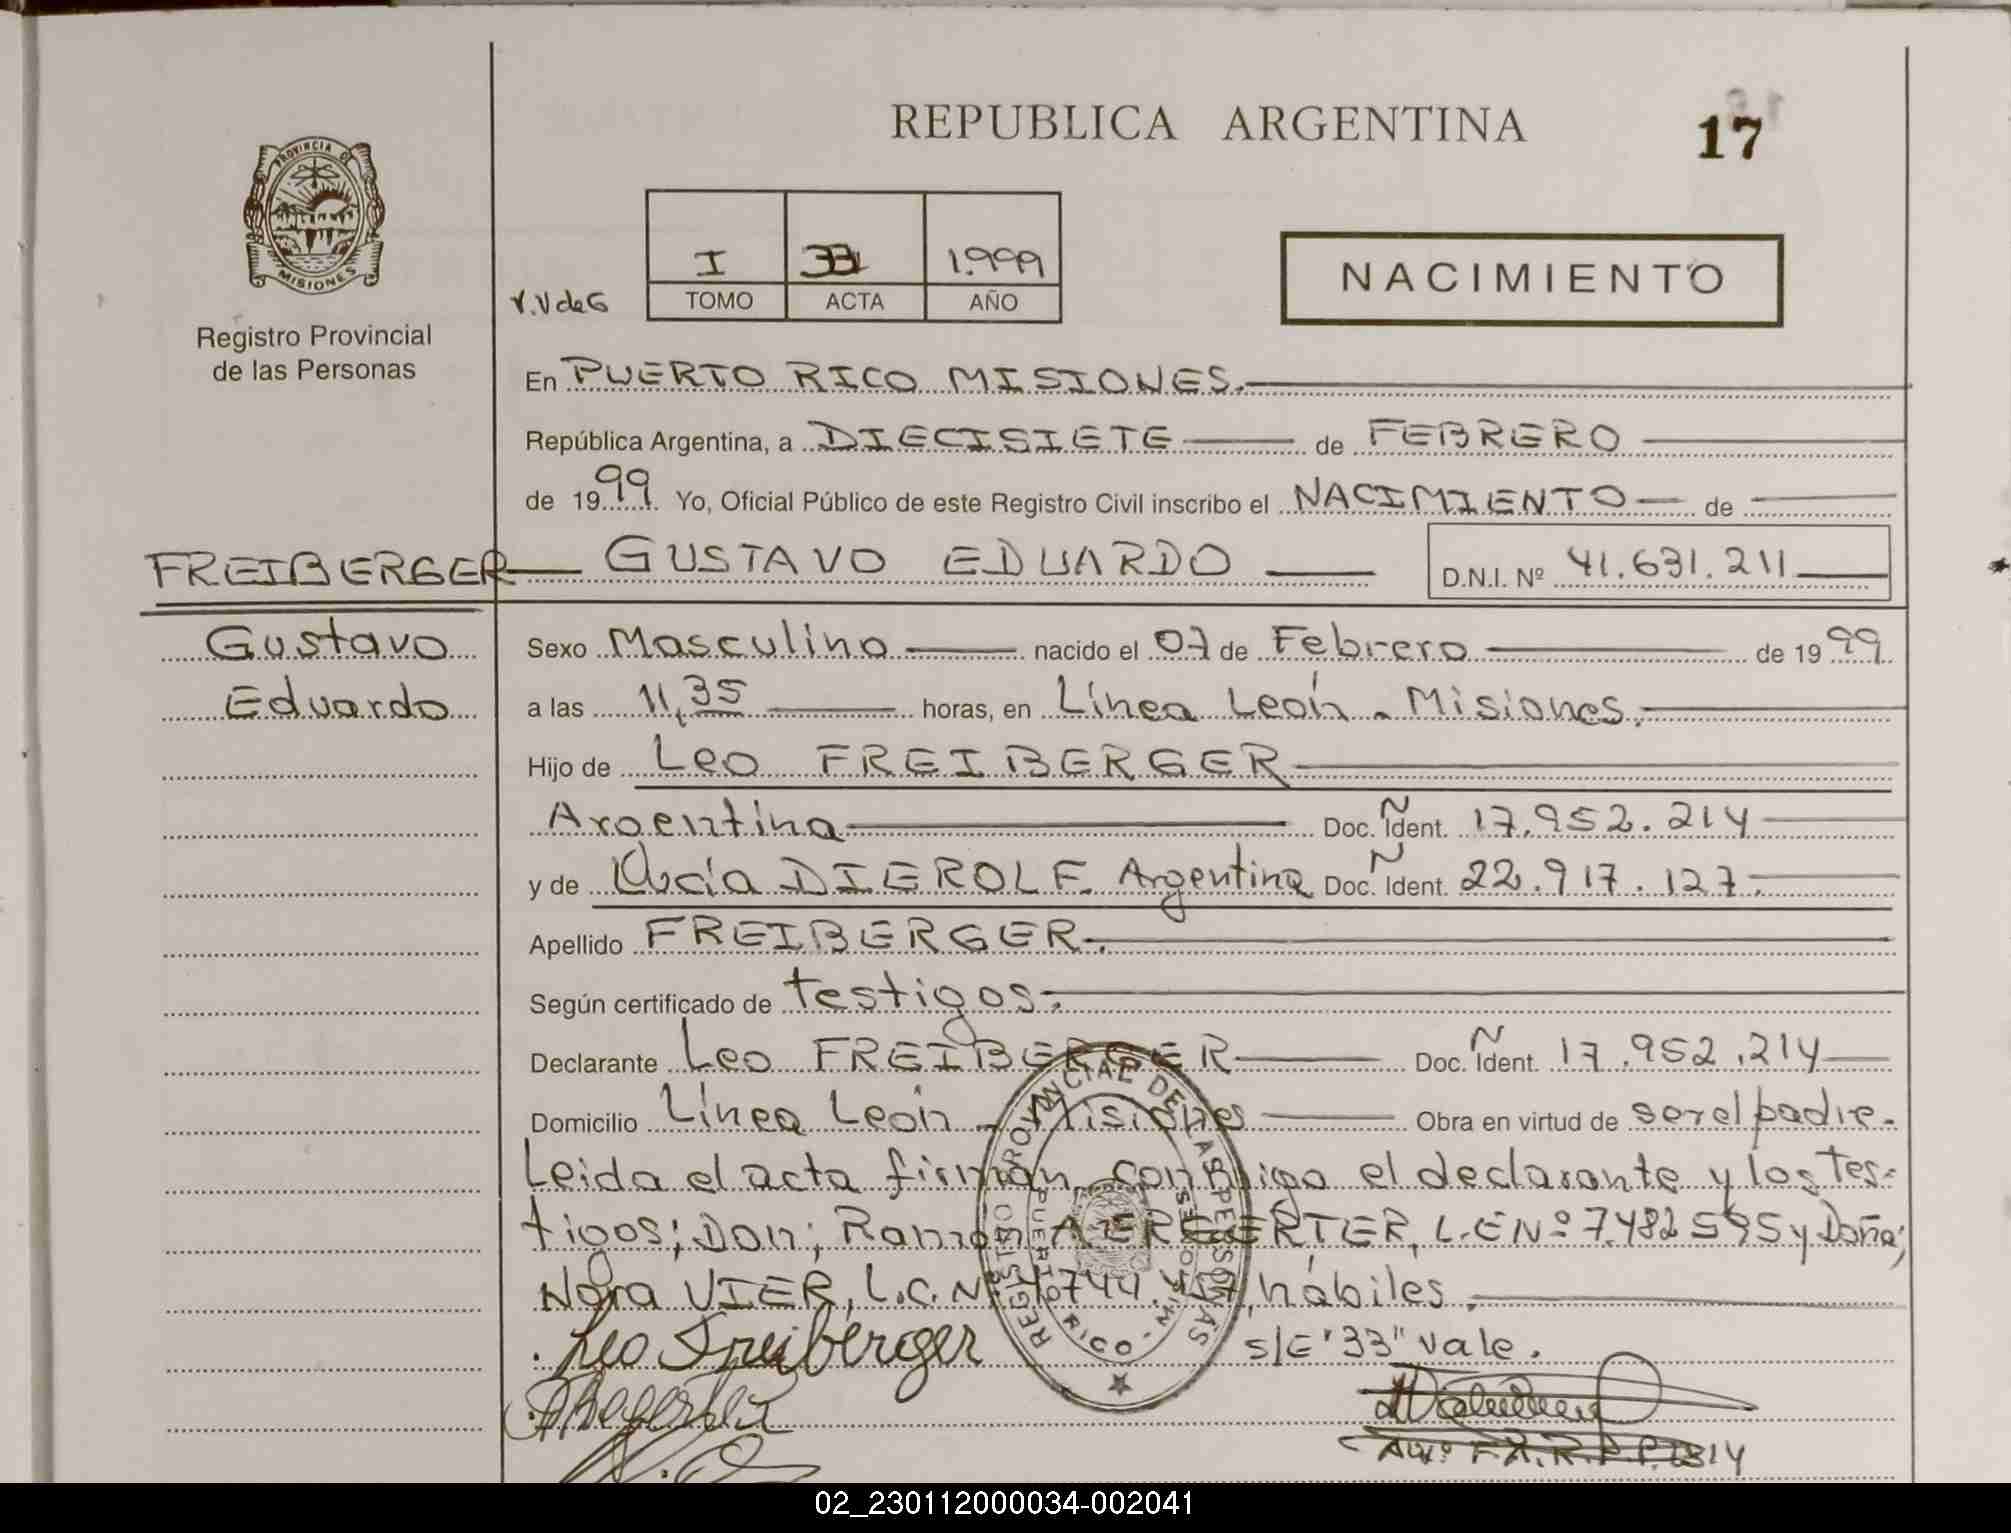 REPUBLICA ARGENTINA
17
PROVINCIA DE
MISIONES
Registro Provincial
de las Personas
I 33 1.999
TOMO ACTA AÑO
NACIMIENTO
En PUERTO RICO MISIONES.
República Argentina, a DIECISIETE de FEBRERO
de 1999 Yo, Oficial Público de este Registro Civil inscribo el NACIMIENTO de
FREIBERGER GUSTAVO EDUARDO D.N.I. Nº 41.631.211
Gustavo
Eduardo
Sexo Masculino nacido el 07 de Febrero de 1999
a las 11,35 horas, en Línea León - Misiones.
Hijo de Leo FREIBERGER
Argentina Doc. Ident. Ñ 17.952.214
y de Lucía DIEROLF. Argentina Doc. Ident. Ñ 22.917.127.
Apellido FREIBERGER.
Según certificado de testigos.
Declarante Leo FREIBERGER Doc. Ident. Ñ 17.952.214
Domicilio Línea León - Misiones Obra en virtud de ser el padre.
Leida el acta firman conmigo el declarante y los tes-
tigos; Don; Ramón L.E Nº 7.482595 y Doña;
Nora VIER, L.C. Nº hábiles.
Leo Freiberger
s/E "33" vale.
REGISTRO PROVINCIAL DE LAS PERSONAS
PUERTO RICO - MISIONES
02_230112000034-002041